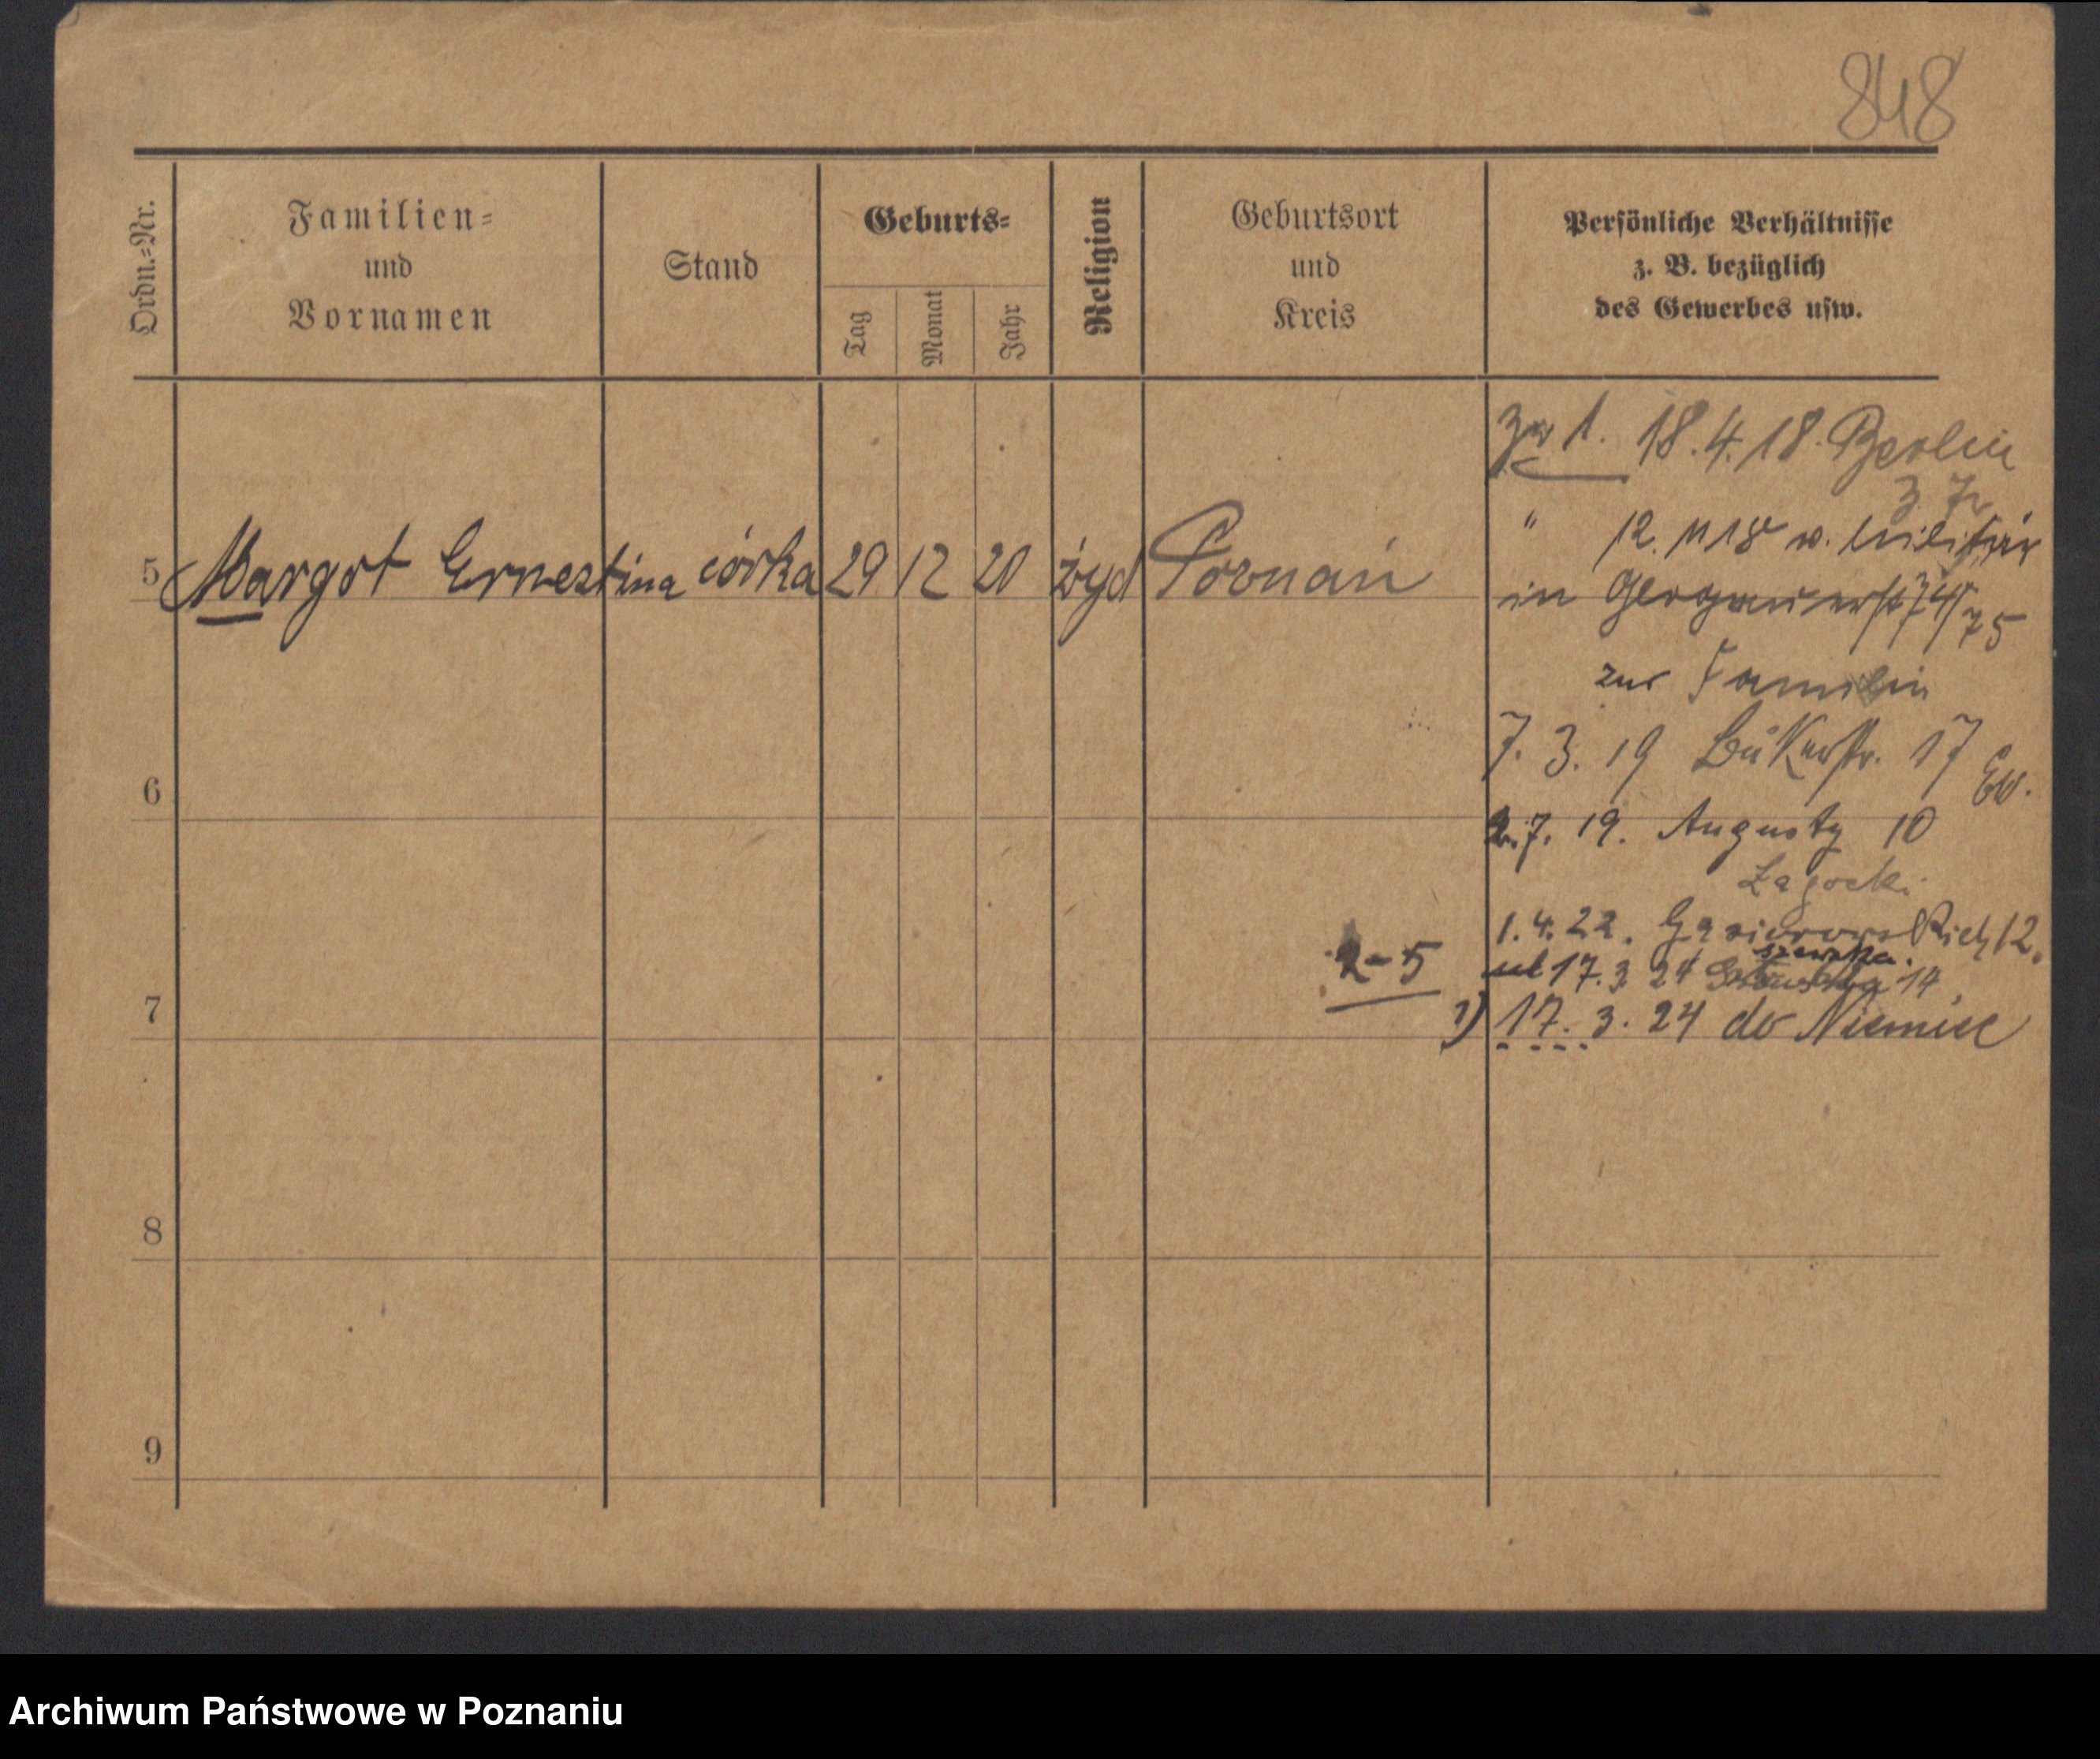 848
Ordn.=Nr.
Familien=
und
Vornamen
Stand
Geburts=
Tag
Monat
Jahr
Religion
Geburtsort
und
Kreis
Persönliche Verhältnisse
z. B. bezüglich
des Gewerbes usw.
zu 1. 18.4.18. Berlin
" 12. 11 18 v. Militär
5 Margot Ernestina córka 29 12 20 żyd Poznań
in 74/75
zur
7. 3. 19 Bukerstr. 17
6
2.7. 19. Augusty 10
1. 4. 22. 12.
szewska.
2-5
17. 3 24 14
7
1) 17. 3. 24 do Niemiec
8
9
Archiwum Państwowe w Poznaniu